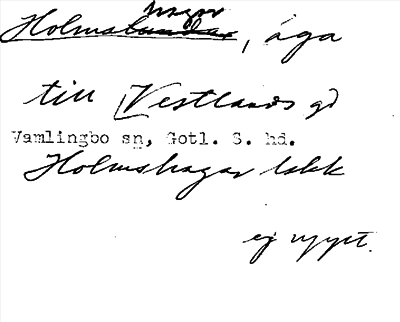 Holmshagar, äga
till Vestlands gd
Vamlingbo sn, Gotl. S. hd.
Holmshagar lekk
ej uppt.